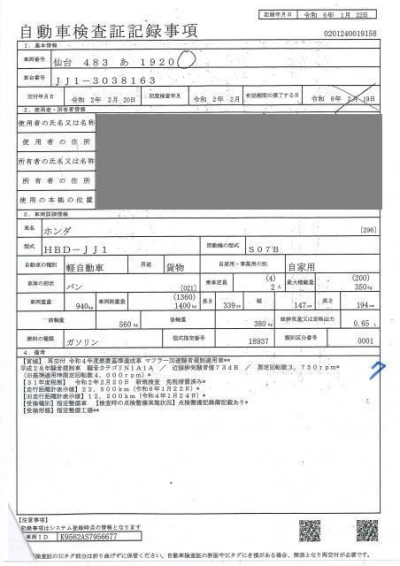 記録年月日 令和 6年 1月 22日
自動車検査証記録事項
0201240019158
1．基本情報
車両番号 仙台 483 あ 1920
車台番号 JJ1-3038163
交付年月日 令和 2年 2月 20日 初度検査年月 令和 2年 2月 有効期間の満了する日 令和 6年 2月 19日
2．使用者・所有者情報
使用者の氏名又は名称
使用者の住所
所有者の氏名又は名称
所有者の住所
使用の本拠の位置
3．車両詳細情報
車名 ホンダ [296]
型式 HBD-JJ1 原動機の型式 S07B
自動車の種別 軽自動車 用途 貨物 自家用・事業用の別 自家用
車体の形状 バン [021] 乗車定員 (4) 2人 最大積載量 (200) 350kg
車両重量 940kg 車両総重量 (1360) 1400kg 長さ 339cm 幅 147cm 高さ 194cm
前軸重 560kg 後軸重 380kg 総排気量又は定格出力 0.65 L
燃料の種類 ガソリン 型式指定番号 18937 類別区分番号 0001
4．備考
[宮城] 再交付 令和4年度燃費基準達成車 マフラー加速騒音規制適用車**
平成28年騒音規制車 騒音カテゴリN1A1A ／ 近接排気騒音値73dB ／ 測定回転数3,750rpm)*
(旧基準適用時測定回転数4,000rpm)*
[31年度税制] 令和2年2月20日 新規検査 免税措置済み*
[走行距離計表示値] 22,500km (令和6年1月22日)*
[旧走行距離計表示値] 13,200km (令和4年1月24日)*
[受検種別] 指定整備車 [検査時の点検整備実施状況] 点検整備記録簿記載あり*
[受検形態] 指定整備工場**
【注意事項】
記録事項はシステム登録時点の情報となります
車両ID K9562AS7956677